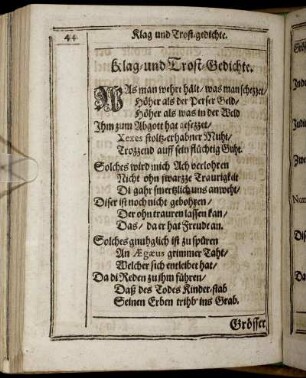 44
Klag und Trost-gedichte.
Klag-und Trost-Gedichte.
WAs man wehrt hält/ was man schezzet/
Höher als der Perser Geld/
Höher als was in der Weld
Ihm zum Abgott hat gesezzet/
Xexes stoltz-erhabner Muht/
Trozzend auff sein flüchtig Guht.
Solches wird mich Ach verlohren
Nicht ohn swarzze Traurigkeit
Di gahr smertzlich uns anweht/
Diser ist noch nicht gebohren/
Der ohn trauren lassen kan/
Das/ da er hat Freude an.
Solches gnuhglich ist zu spüren
An Ægæus grimmer Taht/
Welcher sich entleibet hat/
Da di Reden zu ihm führen/
Daß des Todes Kinder-stab
Seinen Erben trihb ins Grab.
Grösser